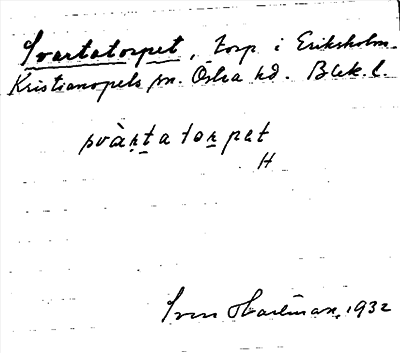 Svartatorpet, torp i Eriksholm.
Kristianopels sn. Östra hd. Blek. l.
svàṛṯa toṟpet
H
Sven Hartman, 1932